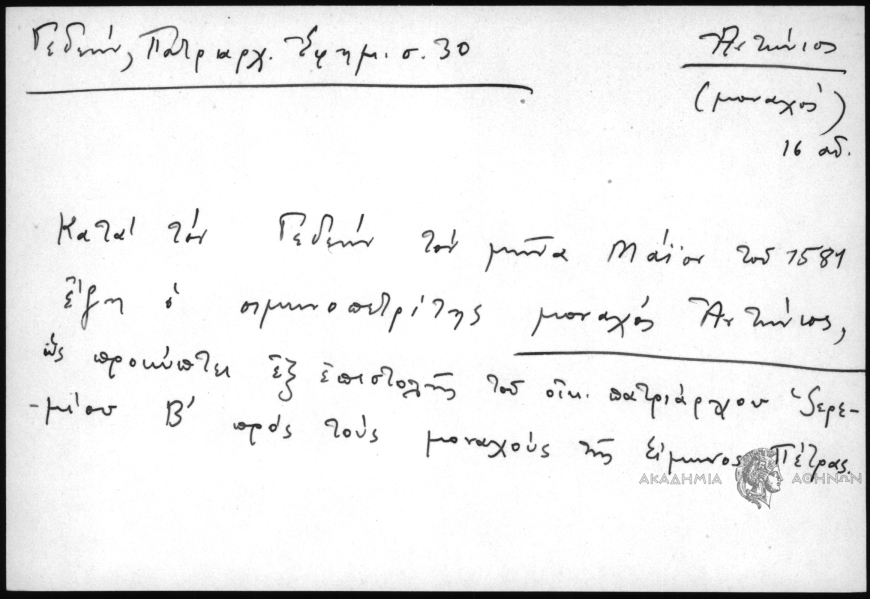 Γεδεών, Πατριαρχ. Ἐφημ. σ. 30
Ἀντώνιος
(μοναχός)
16 αἰ.
Κατά τόν Γεδεών τόν μῆνα Μάϊον τοῦ 1581
ἔζη ὁ σιμωνοπετρίτης μοναχός Ἀντώνιος,
ὡς προκύπτει ἐξ ἐπιστολῆς τοῦ οἰκ. πατριάρχου Ἱερε-
-μίου Β' πρός τούς μοναχούς τῆς Σίμωνος Πέτρας.
ΑΚΑΔΗΜΙΑ ΑΘΗΝΩΝ